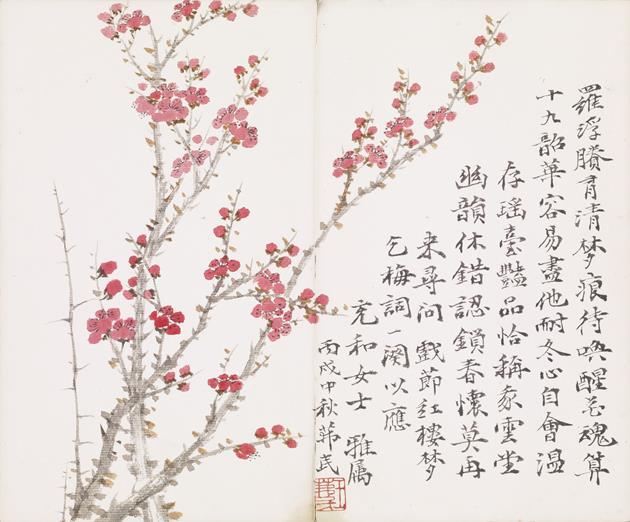 羅浮賸有清夢痕待喚醒花魂算
十九韶華容易盡他耐冬心自會溫
存瑤臺豔品恰稱雲堂
幽韻休錯認鎖春懷莫再
來尋問 戲節紅樓夢
乞梅詞一闋以應
充和女士 雅屬
丙戌中秋茀民